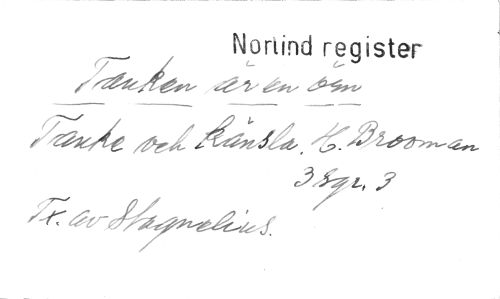 Norlind register
Tanken är en örn
Tanke och känsla. H. Brooman
3 sgr. 3
Tx. av Stagnelius.